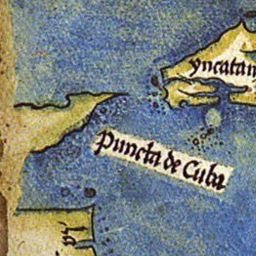 yncatan
Puncta de Cuba